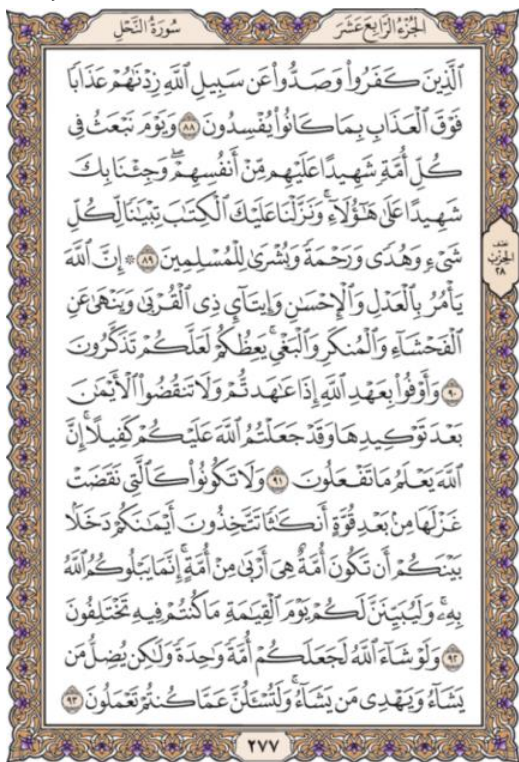 الجُزْءُ الرَّابِعَ عَشَرَ
سُورَةُ النَّحْلِ
ٱلَّذِينَ كَفَرُوا۟ وَصَدُّوا۟ عَن سَبِيلِ ٱللَّهِ زِدْنَـٰهُمْ عَذَابًا
فَوْقَ ٱلْعَذَابِ بِمَا كَانُوا۟ يُفْسِدُونَ ٨٨ وَيَوْمَ نَبْعَثُ فِى
كُلِّ أُمَّةٍ شَهِيدًا عَلَيْهِم مِّنْ أَنفُسِهِمْ ۖ وَجِئْنَا بِكَ
شَهِيدًا عَلَىٰ هَـٰٓؤُلَآءِ ۚ وَنَزَّلْنَا عَلَيْكَ ٱلْكِتَـٰبَ تِبْيَـٰنًا لِّكُلِّ
شَىْءٍ وَهُدًى وَرَحْمَةً وَبُشْرَىٰ لِلْمُسْلِمِينَ ٨٩ ۞ إِنَّ ٱللَّهَ
يَأْمُرُ بِٱلْعَدْلِ وَٱلْإِحْسَـٰنِ وَإِيتَآئِ ذِى ٱلْقُرْبَىٰ وَيَنْهَىٰ عَنِ
ٱلْفَحْشَآءِ وَٱلْمُنكَرِ وَٱلْبَغْىِ ۚ يَعِظُكُمْ لَعَلَّكُمْ تَذَكَّرُونَ
٩٠ وَأَوْفُوا۟ بِعَهْدِ ٱللَّهِ إِذَا عَـٰهَدتُّمْ وَلَا تَنقُضُوا۟ ٱلْأَيْمَـٰنَ
بَعْدَ تَوْكِيدِهَا وَقَدْ جَعَلْتُمُ ٱللَّهَ عَلَيْكُمْ كَفِيلًا ۚ إِنَّ
ٱللَّهَ يَعْلَمُ مَا تَفْعَلُونَ ٩١ وَلَا تَكُونُوا۟ كَٱلَّتِى نَقَضَتْ
غَزْلَهَا مِنۢ بَعْدِ قُوَّةٍ أَنكَـٰثًا تَتَّخِذُونَ أَيْمَـٰنَكُمْ دَخَلًۢا
بَيْنَكُمْ أَن تَكُونَ أُمَّةٌ هِىَ أَرْبَىٰ مِنْ أُمَّةٍ ۚ إِنَّمَا يَبْلُوكُمُ ٱللَّهُ
بِهِۦ ۚ وَلَيُبَيِّنَنَّ لَكُمْ يَوْمَ ٱلْقِيَـٰمَةِ مَا كُنتُمْ فِيهِ تَخْتَلِفُونَ
٩٢ وَلَوْ شَآءَ ٱللَّهُ لَجَعَلَكُمْ أُمَّةً وَٰحِدَةً وَلَـٰكِن يُضِلُّ مَن
يَشَآءُ وَيَهْدِى مَن يَشَآءُ ۚ وَلَتُسْـَٔلُنَّ عَمَّا كُنتُمْ تَعْمَلُونَ ٩٣
نصف
الحزب
٢٨
٢٧٧